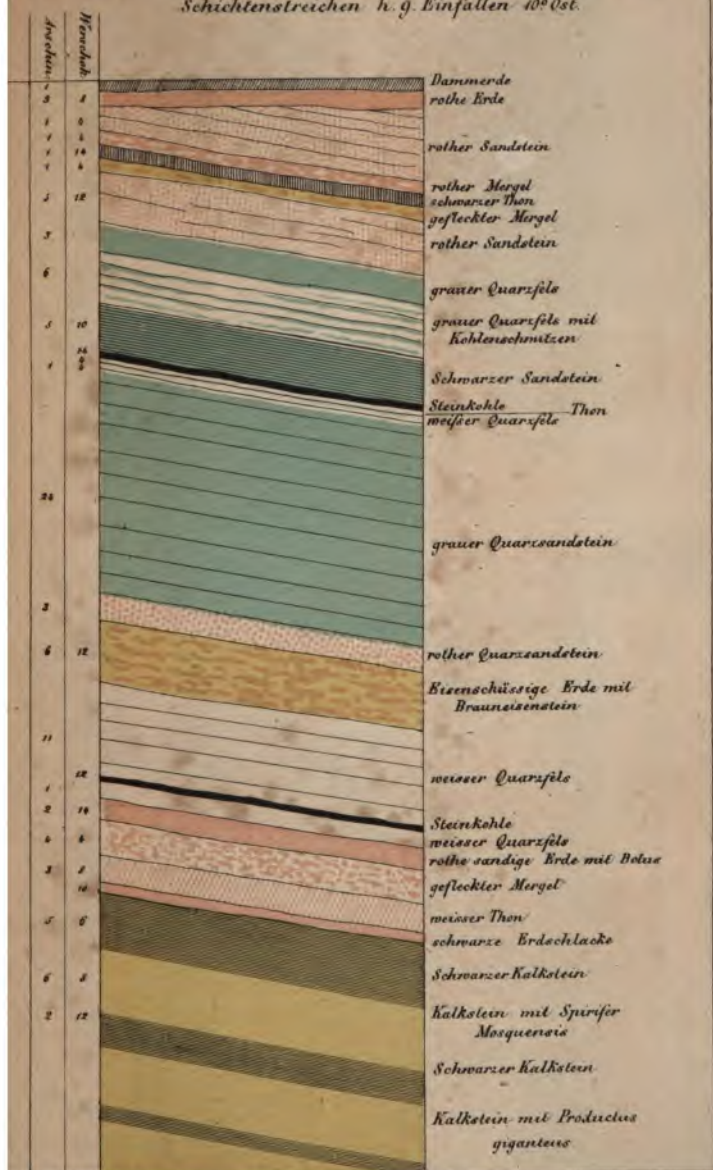 Schichtenstreichen h. 9. Einfallen 10° Ost.
Arschin
Werschok
Dammerde
rothe Erde
rother Sandstein
rother Mergel
schwarzer Thon
gefleckter Mergel
rother Sandstein
grauer Quarzfels
grauer Quarzfels mit
Kohlenschmitzen
Schwarzer Sandstein
Steinkohle Thon
weißer Quarzfels
grauer Quarzsandstein
rother Quarzsandstein
Eisenschüssige Erde mit
Brauneisenstein
weisser Quarzfels
Steinkohle
weisser Quarzfels
rothe sandige Erde mit Bolus
gefleckter Mergel
weisser Thon
schwarze Erdschlacke
Schwarzer Kalkstein
Kalkstein mit Spirifer
Mosquensis
Schwarzer Kalkstein
Kalkstein mit Productus
giganteus
3
6
10
24
3
6 12
11
12
1
2 14
4
3
10
5 6
6
2 12